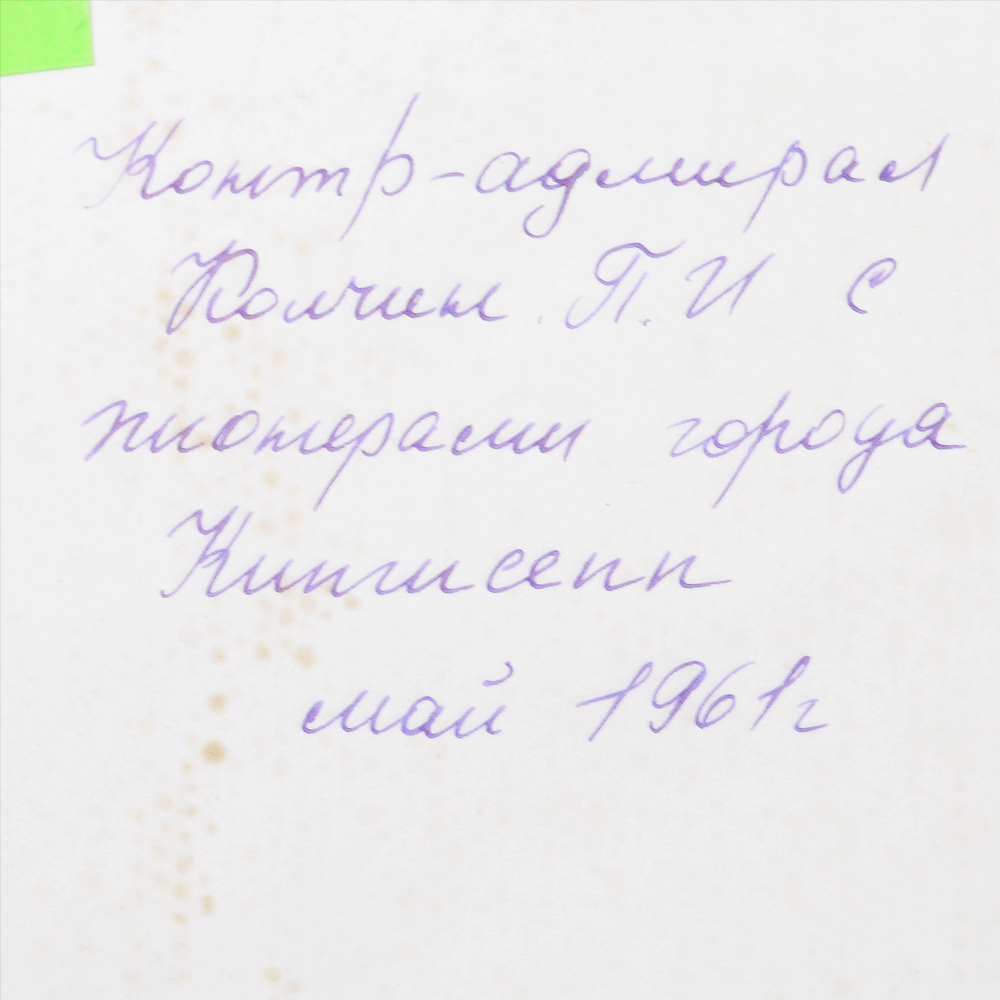 Контр-адмирал
Колчин. П. И с
пионерами города
Кингисепп
май 1961г